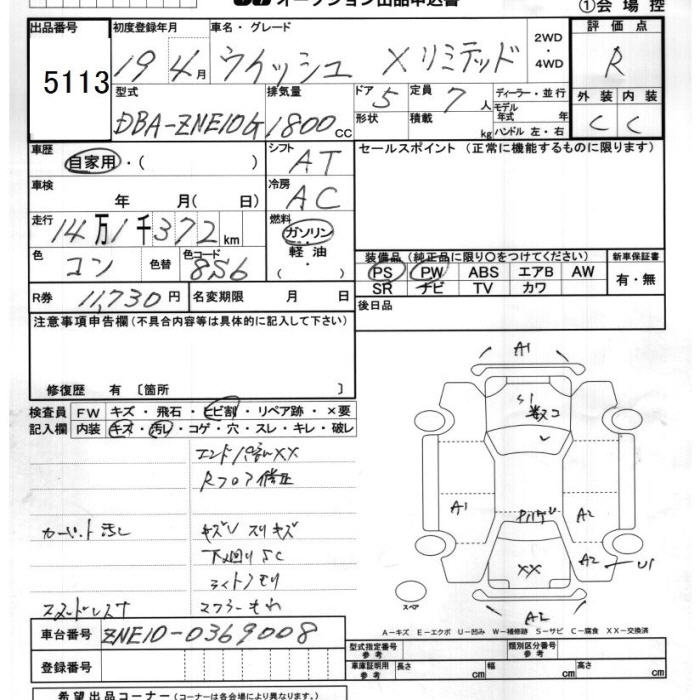 オークション出品申込書
①会場控
出品番号
5113
初度登録年月
19年4月
車名・グレード
ウイッシュ Xリミテッド
2WD
・
4WD
評価点
R
外装 内装
C C
型式
DBA-ZNE10G
排気量
1800CC
ドア 5
形状
定員 7人
積載 kg
ディーラー・並行
モデル年式 年
ハンドル 左・右
車歴
自家用・( )
シフト
AT
セールスポイント(正常に機能するものに限ります)
車検
年 月( 日)
冷房
AC
走行
14万1千372km
燃料
ガソリン
・
軽油
・
( )
色
コン
色替
色コード
8S6
装備品(純正品に限り〇をつけてください)
PS PW ABS エアB AW
SR ナビ TV カワ
新車保証書
有・無
R券 11,730円
名変期限 月 日
後日品
注意事項申告欄(不具合内容等は具体的に記入して下さい)
修復歴 有 〔箇所 〕
検査員
記入欄
FW キズ・飛石・ヒビ割・リペア跡・×要
内装 キズ・汚レ・コゲ・穴・スレ・キレ・破レ
エンドパネルXX
Rフロア修正
カーペット汚レ
キズU スリキズ
下廻りSC
ライトクモリ
スタッドレス付
マフラーモレ
A1
S1
A1
A2
A2
U1
XX
A2
スペア
A−キズ E−エクボ U−凹み W−補修跡 S−サビ C−腐食 XX−交換済
車台番号 ZNE10-0369008
登録番号
型式指定番号
参考
類別区分番号
参考
車庫証明用
参考
長さ cm
幅 cm
高さ cm
希望出品コーナー(コーナーは各会場により異なります。)